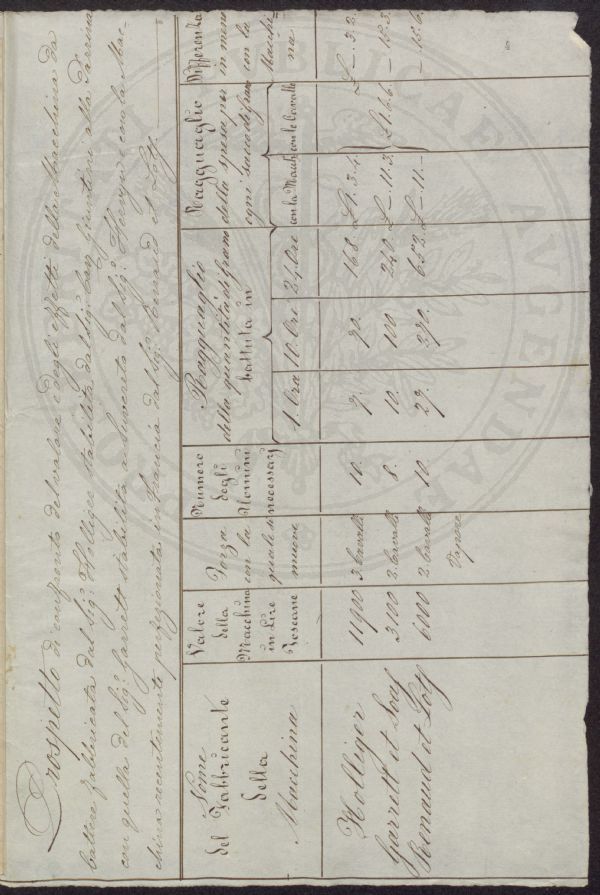 Prospetto di confronto del valore e degli effetti delle Macchine da
battere fabbricata dal Sig.e Holliger stabilita dal Sig.e alla Farina
con quella del Sig.e Garrett stabilita a dal Sig.e e con la Mac-
china recentemente perfezionata in Francia dal Sig.e Renaud et Lotz.
Nome del Fabbricante della Macchina
Valore della Macchina in Lire Toscane
Forza con la quale si muove
Numero degli Uomini necessarj
Ragguaglio della quantità di grano battuta in
1. Ora 10. Ore 24. Ore
Ragguaglio della spesa per ogni sacco di grano
con la Macch. con le Cavalle
Differenza in meno con la Macchina
Holliger 11900 3. cavalli 10. 7. 70. 168. £ 1. 3. 4. £ 1. 6. 6. £ -. 3. 2.
Garrett et Soaf 3100 2. cavalli 8. 10. 100 240. £ -. 11. 3. - 15. 3.
Renaud et Lotz 6000 2. cavalli Vapore 10. 27. 270. 652. £ -. 11. - - 15. 6.
PUBLICAE
AUGENDAE